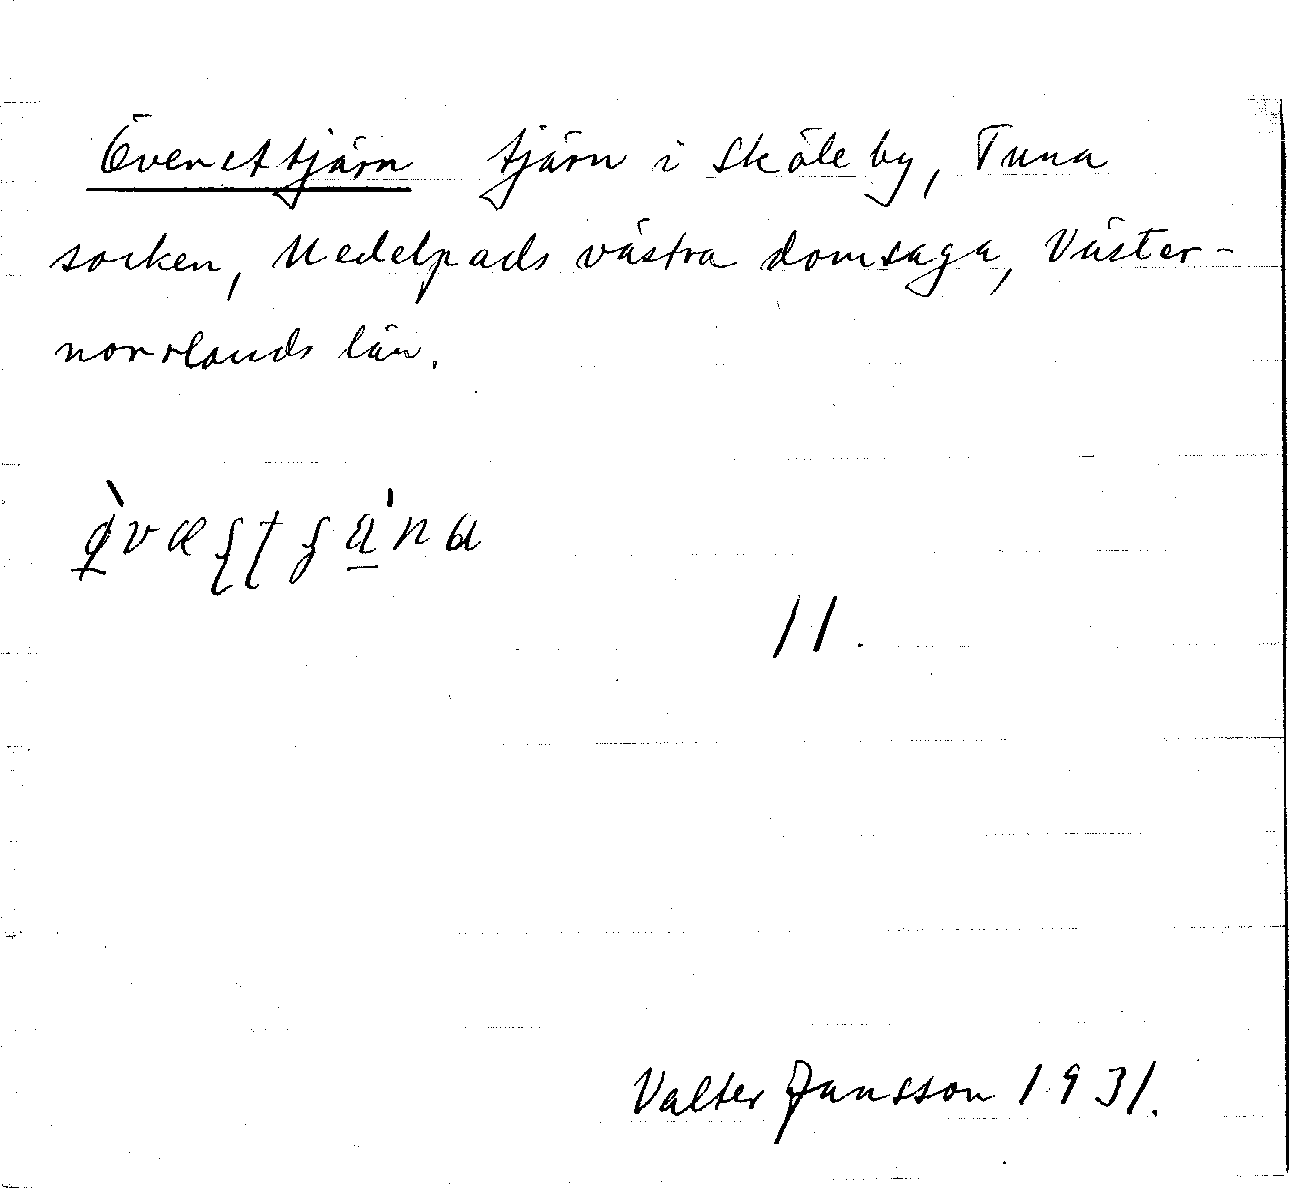 Överettjärn tjärn i Sköle by, Tuna
socken, Medelpads västra domsaga, Väster-
norrlands län.
11.
Valter Jansson 1931.